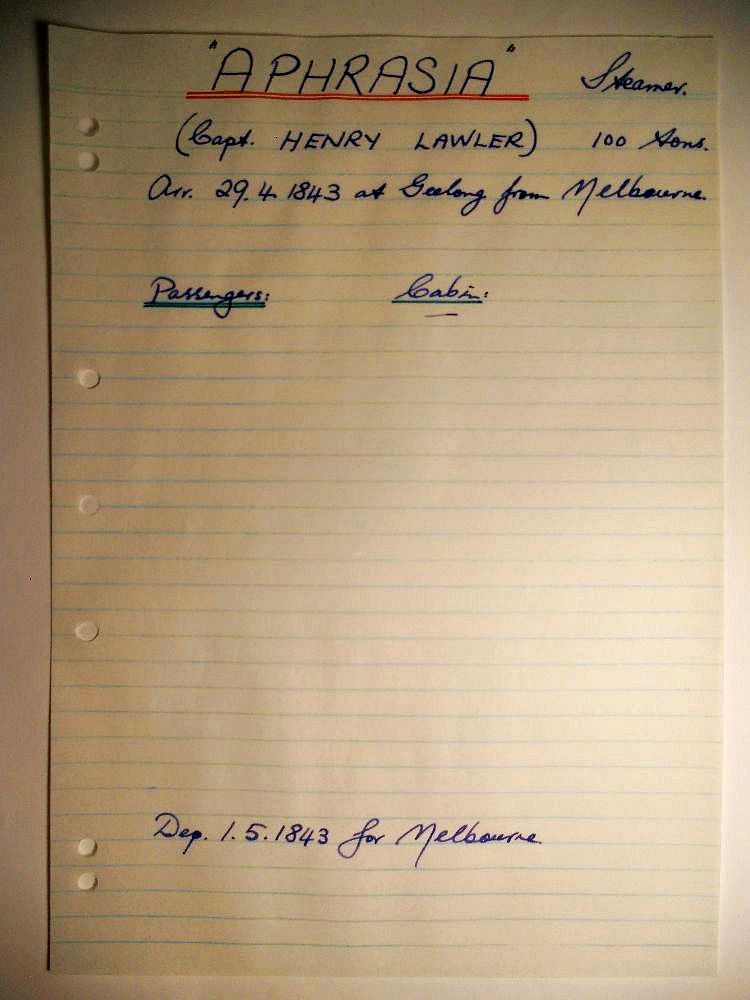 "APHRASIA" Steamer.
(Capt. HENRY LAWLER) 100 tons.
Arr. 29.4.1843 at Geelong from Melbourne.
Passengers: Cabin:
Dep. 1.5.1843 for Melbourne.